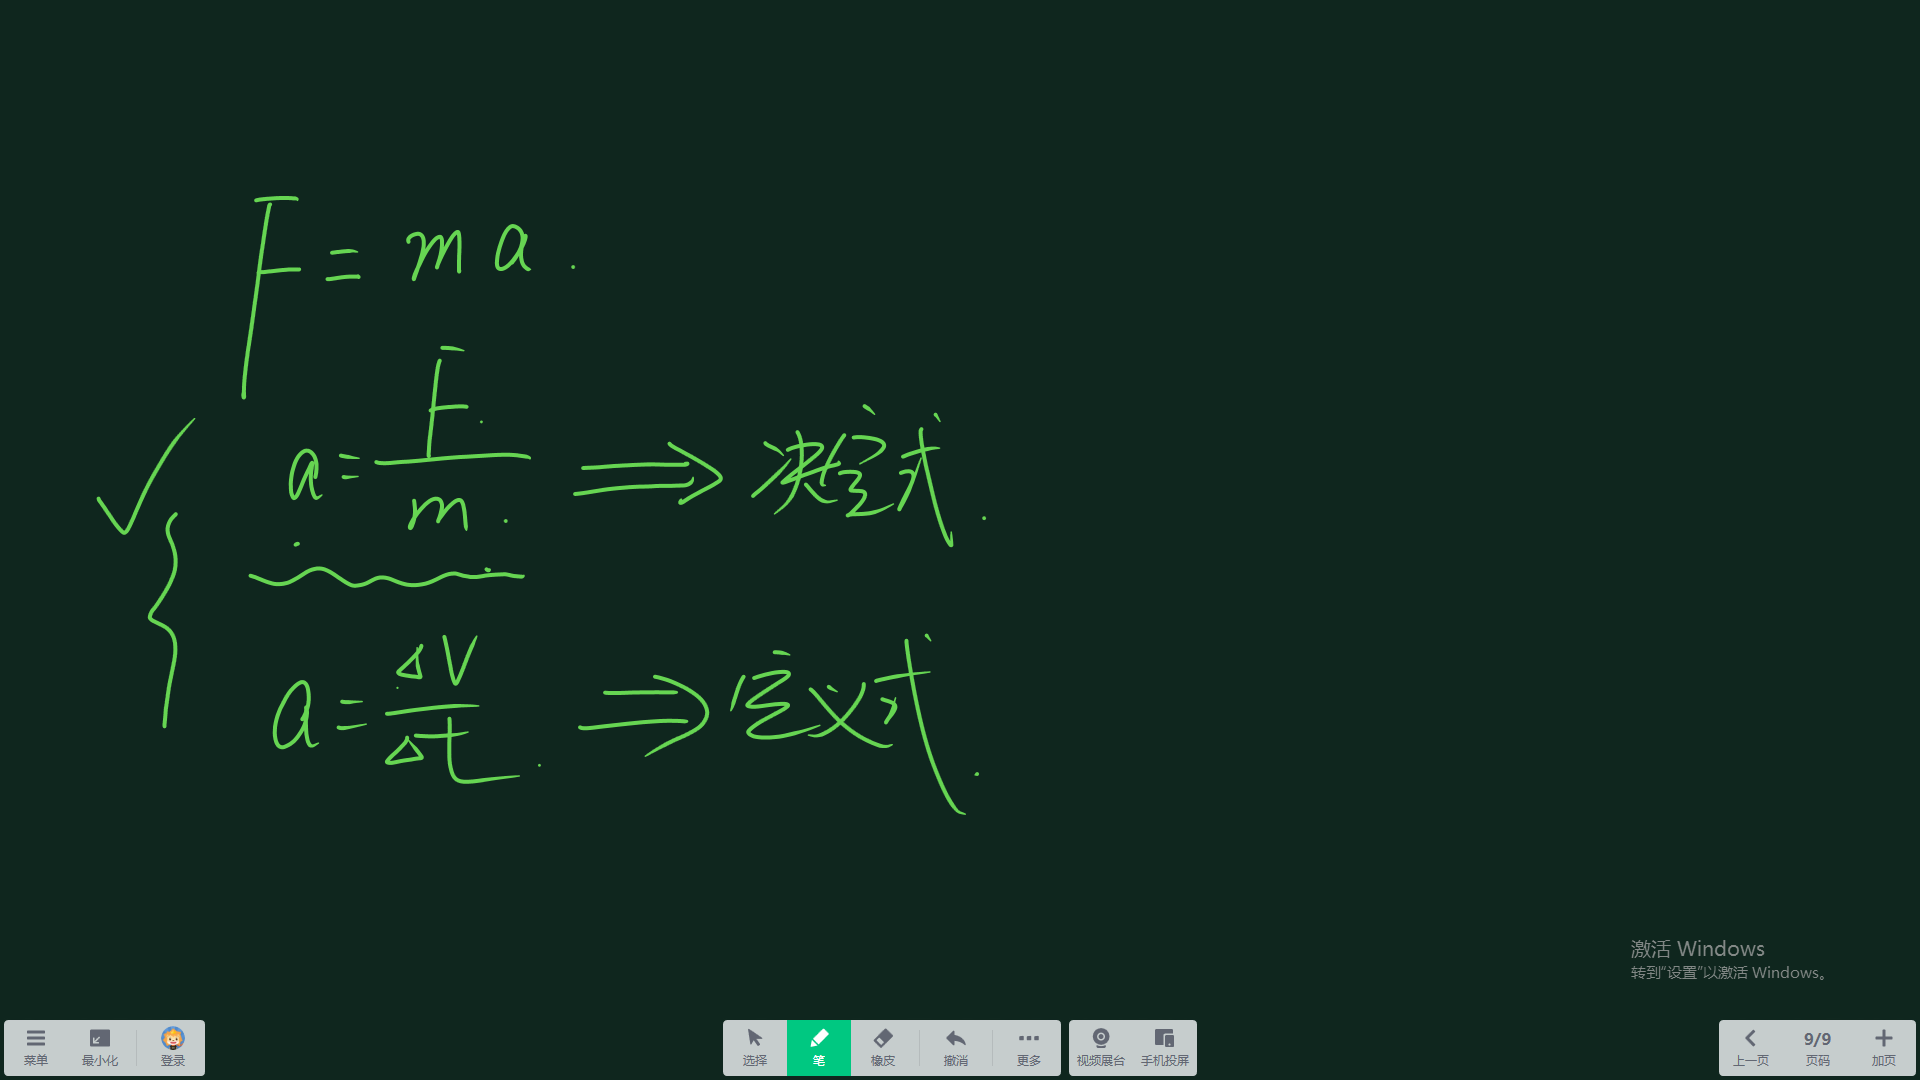 F = ma.
a = F/m ⇒ 决定式.
a = ΔV/Δt ⇒ 定义式.
激活 Windows
转到“设置”以激活 Windows。
菜单 最小化 登录 选择 笔 橡皮 撤消 更多 视频展台 手机投屏 上一页 9/9 页码 加页